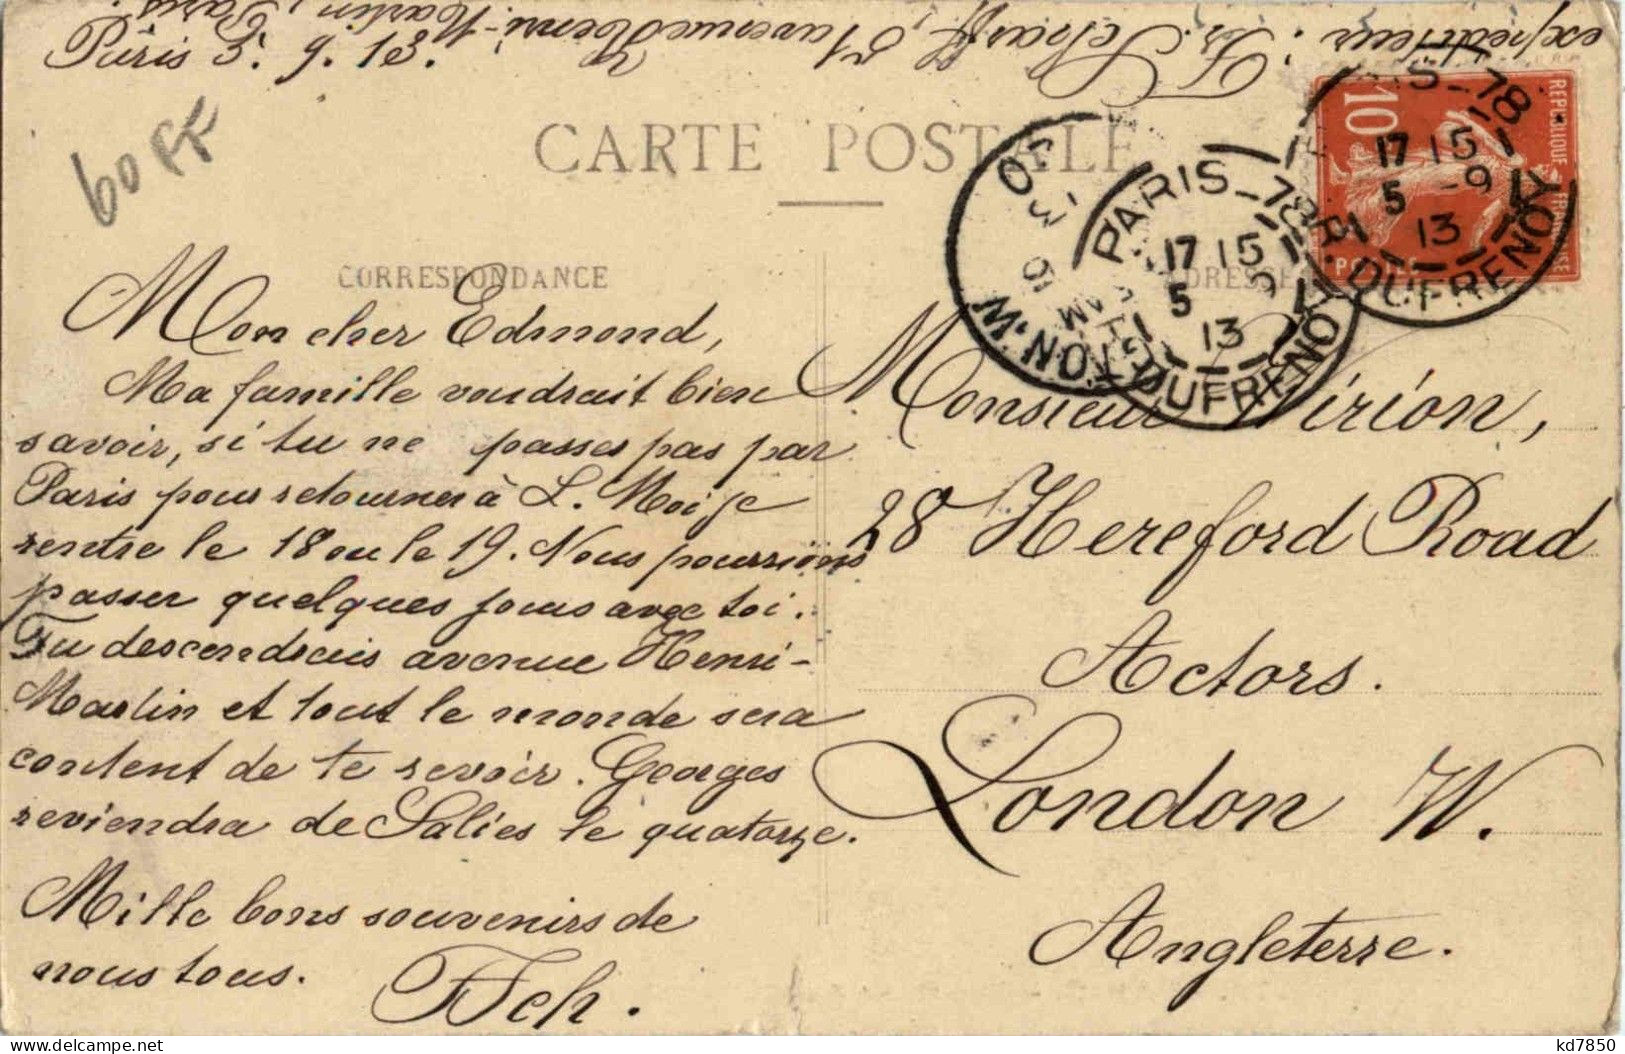 expéditeur: Fr. Schaff, 51 avenue Henri-Martin, Paris.
Paris 5. 9. 13.
60 FF
CARTE POSTALE
CORRESPONDANCE
ADRESSE
REPUBLIQUE FRANÇAISE
10
POSTES
PARIS-78
17 15
5 -9
13
R. DUFRENOY
PARIS-78
17 15
5 9
13
R. DUFRENOY
Mon cher Edmond,
Ma famille voudrait bien
savoir, si tu ne passes pas par
Paris pour retourner à L. Moi je
rentre le 18 ou le 19. Nous pourrions
passer quelques jours avec toi.
Tu descendrais avenue Henri-
Martin et tout le monde sera
content de te revoir. Georges
reviendra de Salies le quatorze.
Mille bons souvenirs de
nous tous.
FSch.
Monsieur Wirion,
28 Hereford Road
Actors.
London W.
Angleterre.
kd7850